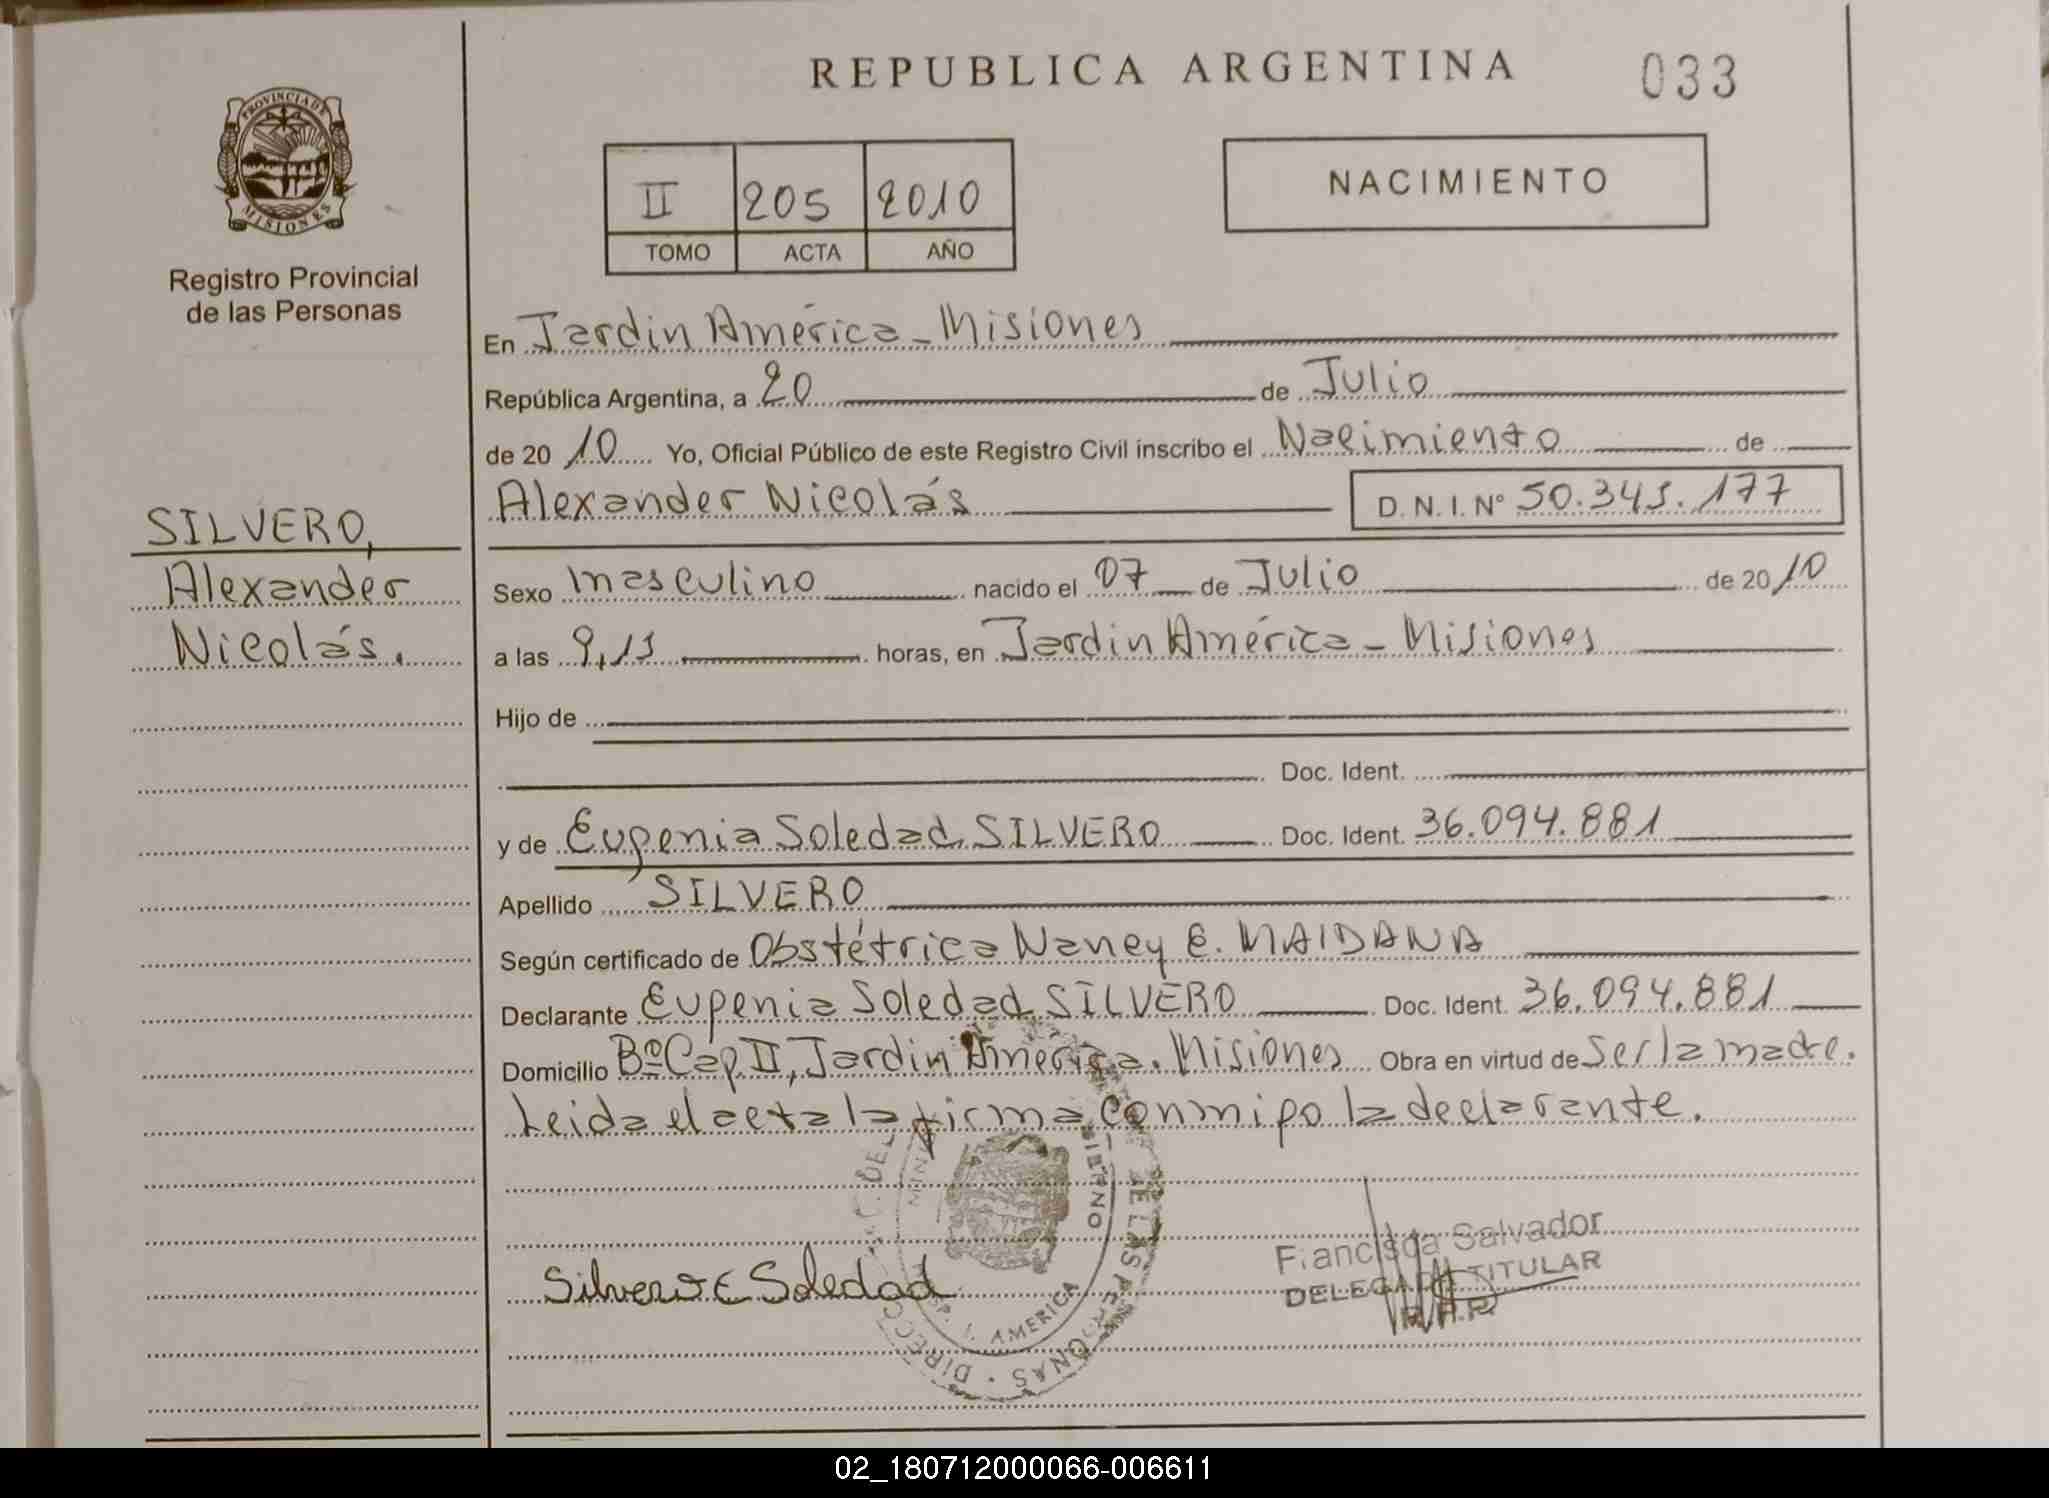 REPUBLICA ARGENTINA
033
PROVINCIA DE
MISIONES
Registro Provincial
de las Personas
II 205 2010
TOMO ACTA AÑO
NACIMIENTO
En Jardin América - Misiones
República Argentina, a 20 de Julio
de 20 10 Yo, Oficial Público de este Registro Civil inscribo el Nacimiento de
Alexander Nicolás D.N.I. Nº 50.345.177
SILVERO,
Alexander
Nicolás.
Sexo masculino nacido el 07 de Julio de 20 10
a las 9,15 horas, en Jardin América - Misiones
Hijo de
Doc. Ident.
y de Eugenia Soledad SILVERO Doc. Ident. 36.094.881
Apellido SILVERO
Según certificado de Obstétrica Nancy E. MAIDANA
Declarante Eugenia Soledad SILVERO Doc. Ident. 36.094.881
Domicilio Bº Cap. II, Jardin América. Misiones Obra en virtud de ser la madre.
Leida el acta la firma conmigo la declarante.
Silvero E Soledad
Francisca Salvador
DELEGADA TITULAR
R.P.P.
DE LAS PERSONAS
AMERICA
02_180712000066-006611